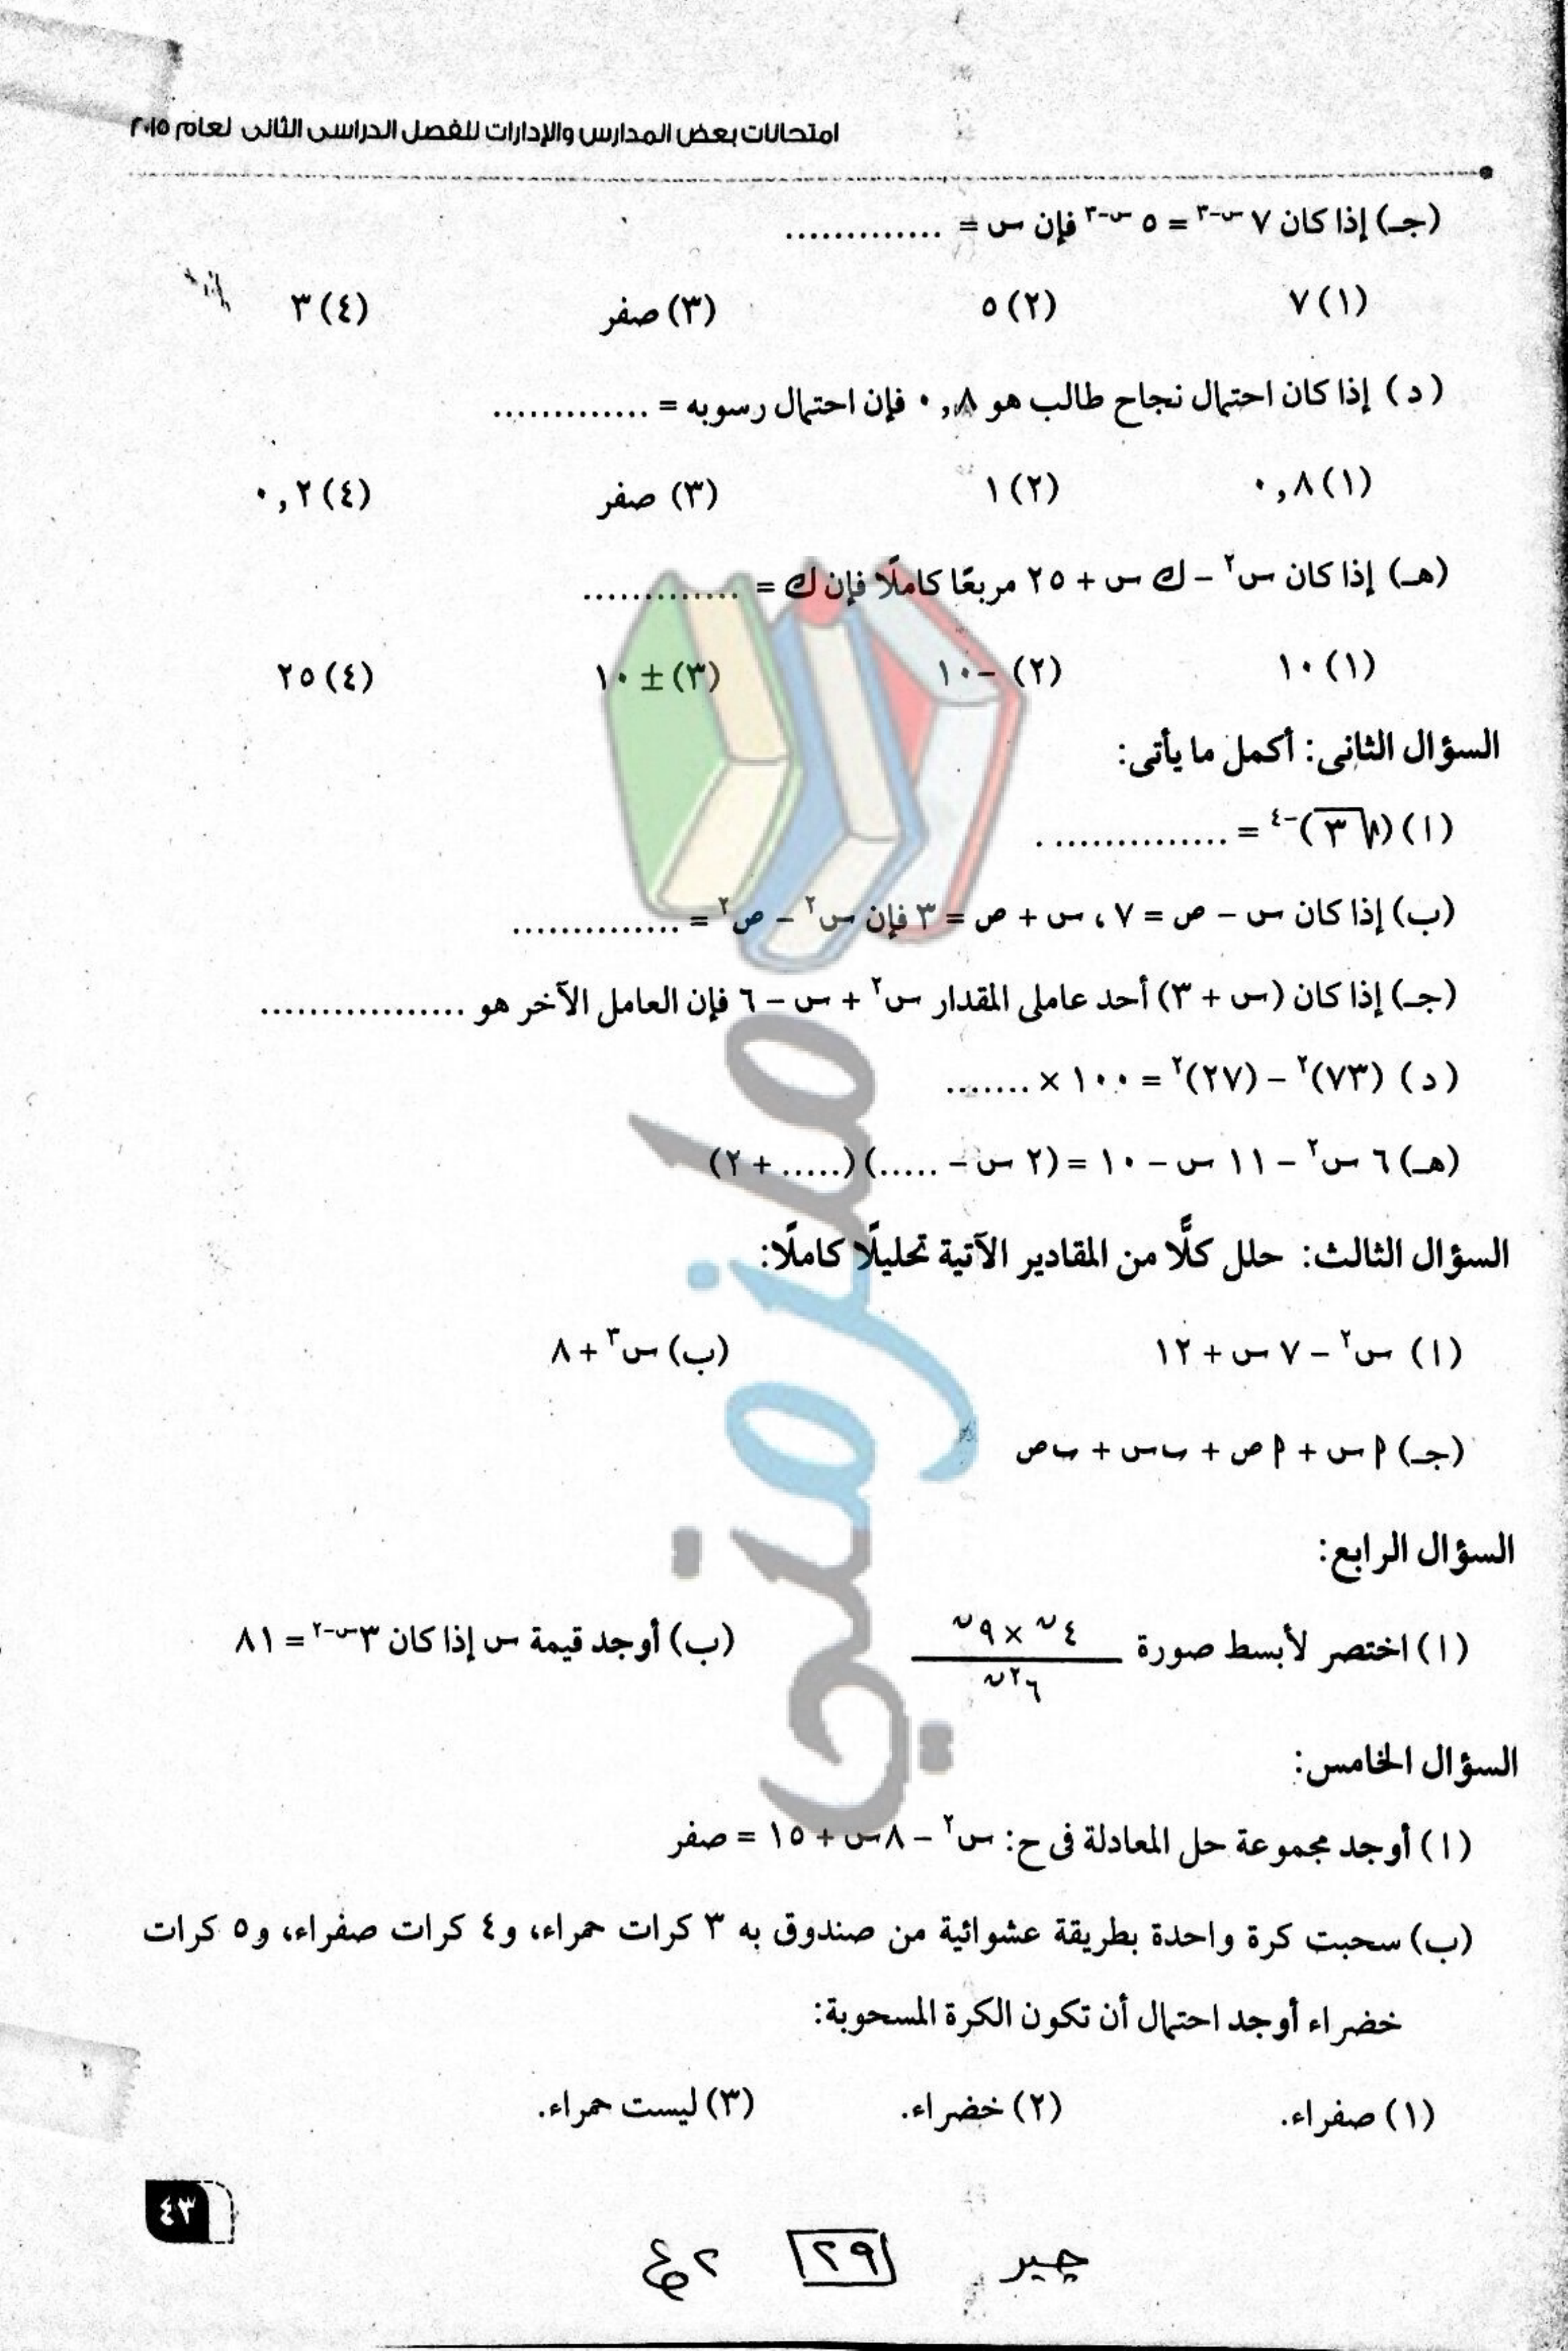 امتحانات بعض المدارس والإدارات للفصل الدراسى الثانى لعام ٢٠١٥
(جـ) إذا كان ٧ س-٣ = ٥ س-٣ فإن س = .............
(١) ٧ (٢) ٥ (٣) صفر (٤) ٣
(د) إذا كان احتمال نجاح طالب هو ٠,٨ فإن احتمال رسوبه = .............
(١) ٠,٨ (٢) ١ (٣) صفر (٤) ٠,٢
(هـ) إذا كان س٢ – ك س + ٢٥ مربعًا كاملًا فإن ك = .............
(١) ١٠ (٢) –١٠ (٣) ± ١٠ (٤) ٢٥
السؤال الثانى: أكمل ما يأتى:
(ا) (√٣)-٤ = ...............
(ب) إذا كان س – ص = ٧ ، س + ص = ٣ فإن س٢ – ص٢ = ..............
(جـ) إذا كان (س + ٣) أحد عاملى المقدار س٢ + س – ٦ فإن العامل الآخر هو .................
(د) (٧٣)٢ – (٢٧)٢ = ١٠٠ × .......
(هـ) ٦ س٢ – ١١ س – ١٠ = (٢ س – .....) (..... + ٢)
السؤال الثالث: حلل كلًّا من المقادير الآتية تحليلًا كاملًا:
(ا) س٢ – ٧ س + ١٢ (ب) س٣ + ٨
(جـ) ا س + ا ص + ب س + ب ص
السؤال الرابع:
(ا) اختصر لأبسط صورة ٤ن × ٩ن / ٦٢ن (ب) أوجد قيمة س إذا كان ٣س-٢ = ٨١
السؤال الخامس:
(ا) أوجد مجموعة حل المعادلة فى ح: س٢ – ٨س + ١٥ = صفر
(ب) سحبت كرة واحدة بطريقة عشوائية من صندوق به ٣ كرات حمراء، و٤ كرات صفراء، و٥ كرات
خضراء أوجد احتمال أن تكون الكرة المسحوبة:
(١) صفراء. (٢) خضراء. (٣) ليست حمراء.
٤٣
جبر ٢٩ ٢ع
ملزمتي